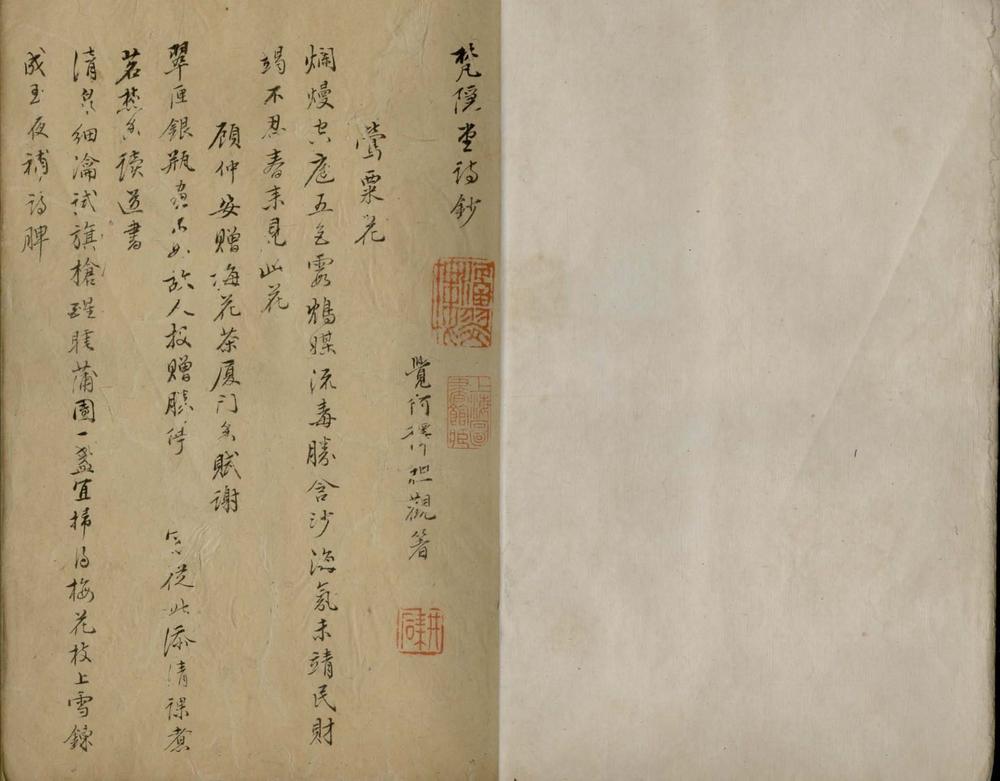 梵隱堂詩鈔
覺阿釋祖觀著
鶯粟花
爛熳空庭五色霞鴆媒流毒勝含沙海氛未靖民財
竭不忍春來見此花
顧仲安贈海花茶厦门香賦謝
翠匣銀瓶故人投贈勝從此添清課煮
茗焚香讀道書
清泉細瀹試旗槍醒睡蒲團一盞宜掃得梅花枝上雪錬
成玉夜補詩脾
上海圖書館藏